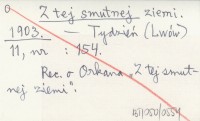 Z tej smutnej ziemi.
1903. — Tydzień (Lwów)
11, nr : 154.
Rec. o Orkana „Z tej smut-
nej ziemi".